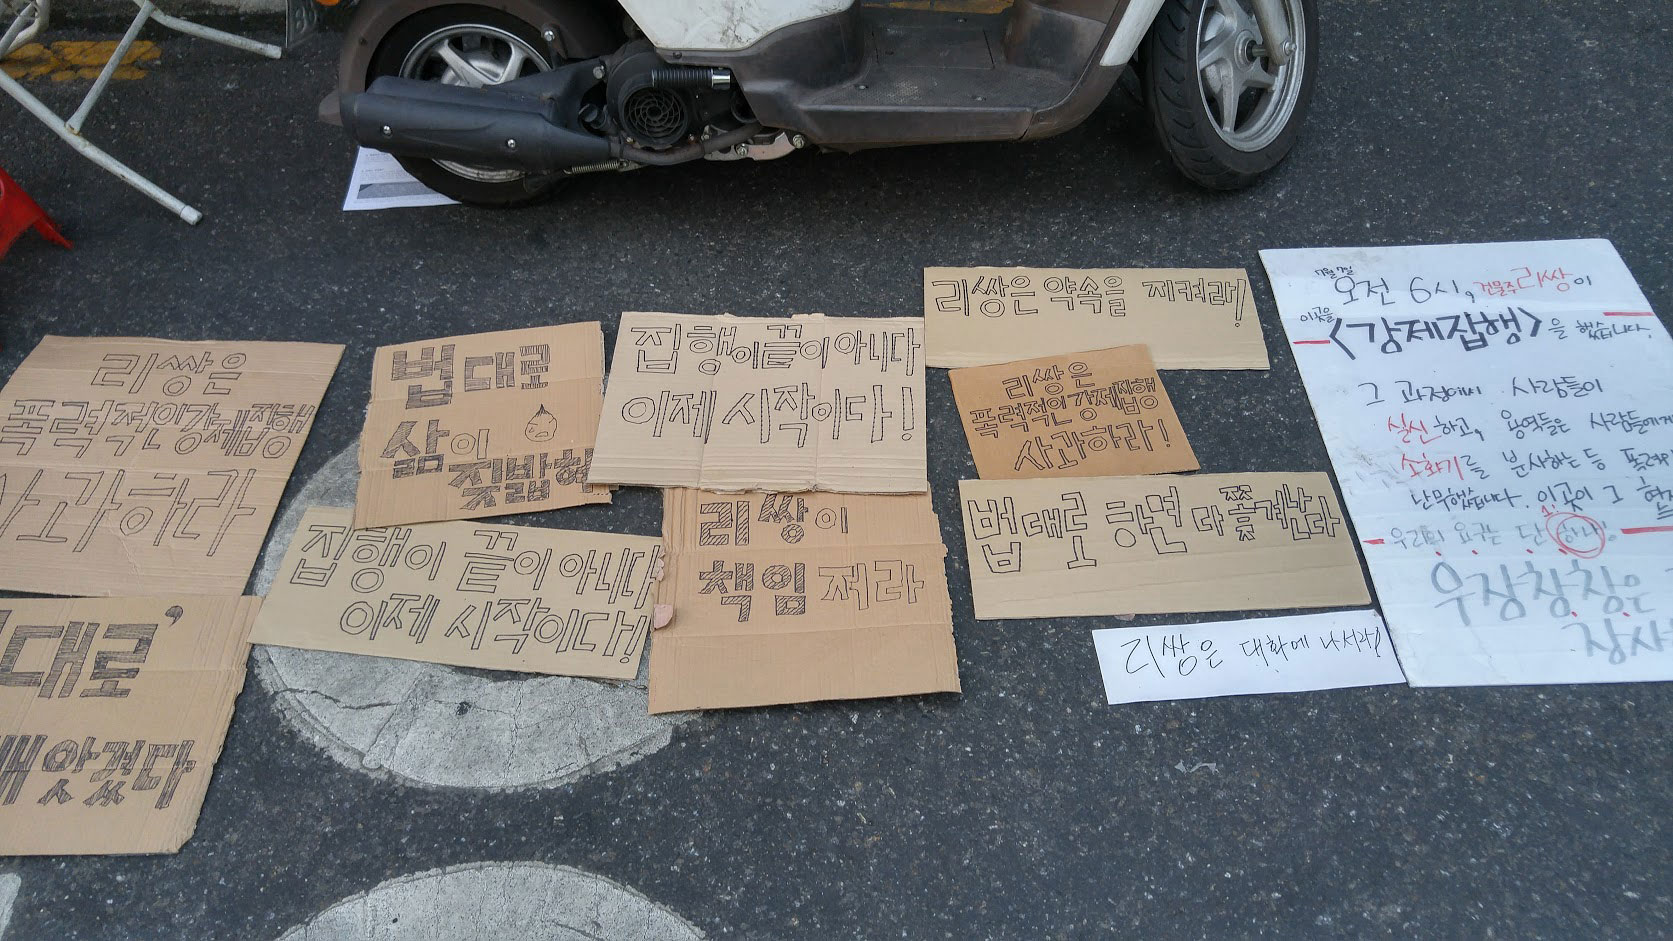 리쌍은
폭력적인강제집행
사과하라
법대로
삶이
짓밟혀
집행이끝이아니다
이제시작이다!
리쌍은 약속을 지켜라!
리쌍은
폭력적인강제집행
사과하라!
집행이 끝이 아니다
이제 시작이다!!
리쌍이
책임 져라
법대로 하면 다 쫓겨난다
리쌍은 대화에 나서라!
대로'
빼앗겼다
7월 7일
오전 6시, 건물주 리쌍이
이곳을
<강제집행>을 했습니다.
그 과정에서 사람들이
실신하고, 용역들은 사람들에게
소화기를 분사하는 등
난무했습니다. 이곳이 그
우리의 요구는 단 하나!
우장창창은
장사